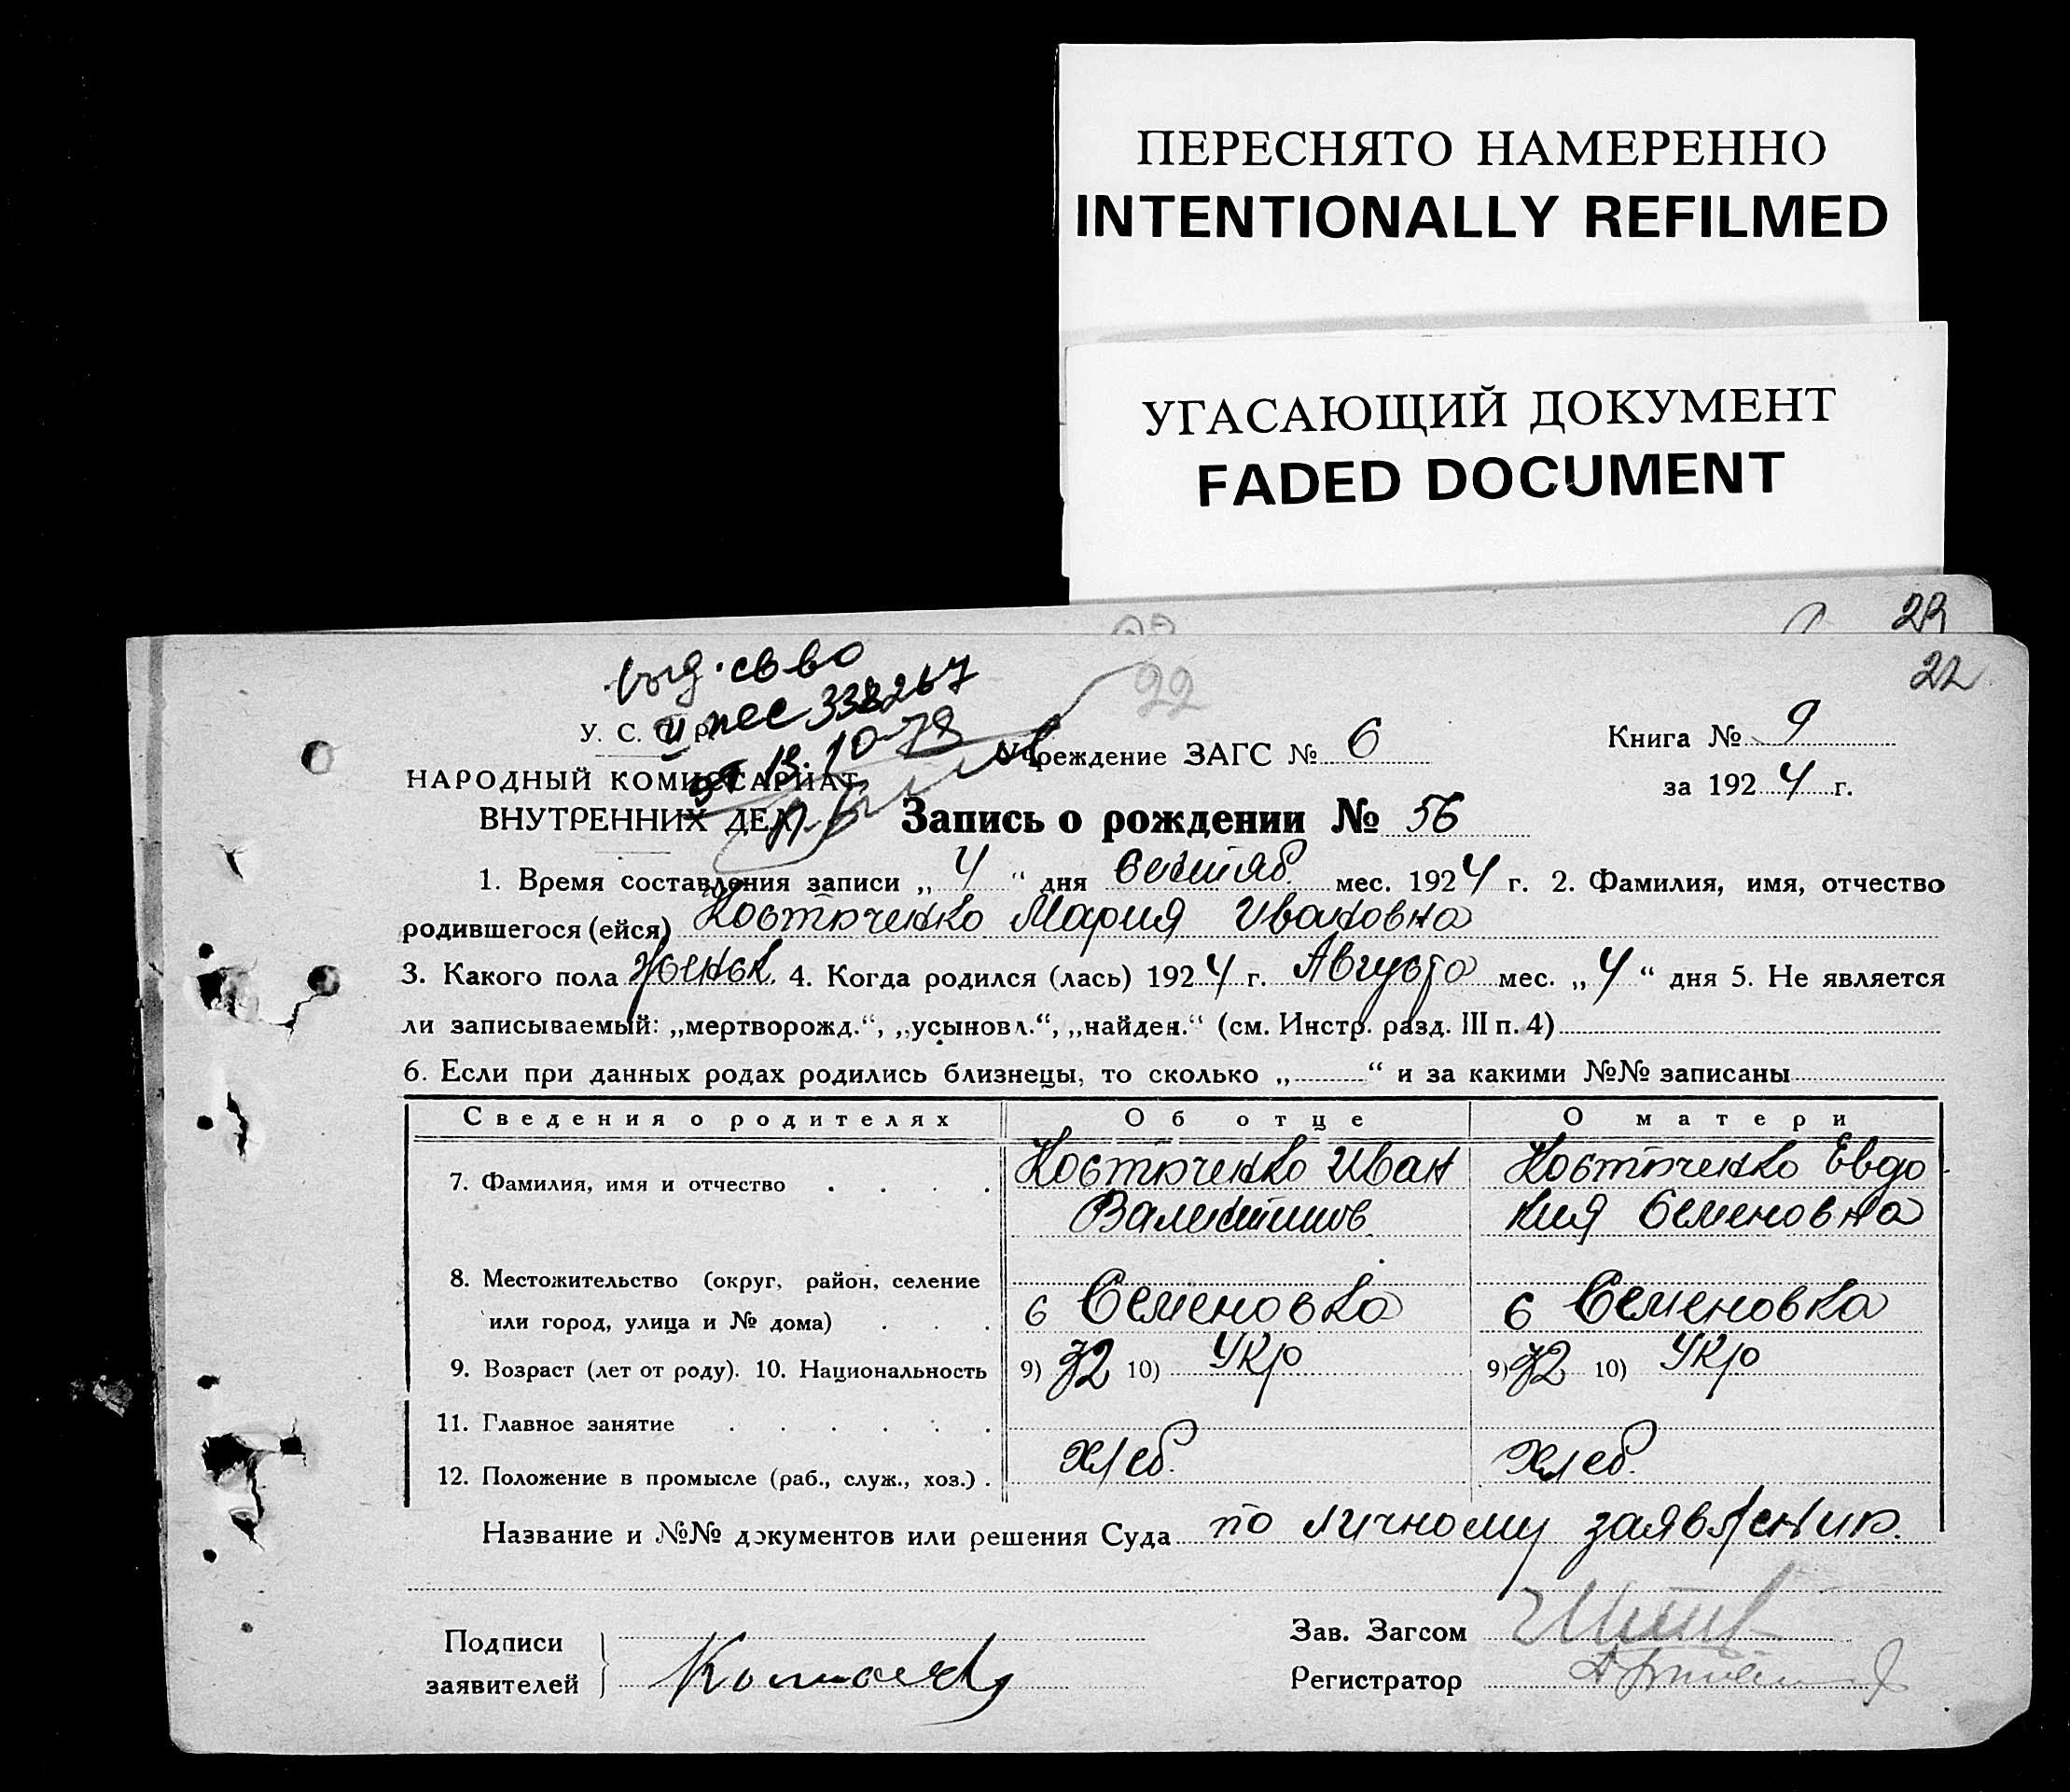 ПЕРЕСНЯТО НАМЕРЕННО
INTENTIONALLY REFILMED
УГАСАЮЩИЙ ДОКУМЕНТ
FADED DOCUMENT
23
22
22
выд. св во
II мес 338267
от 13.10-78
У. С. С. Р.
НАРОДНЫЙ КОМИССАРИАТ
ВНУТРЕННИХ ДЕЛ
Учреждение ЗАГС № 6
Книга № 9
за 1924 г.
Запись о рождении № 56
1. Время составления записи „ 4 “ дня Сентяб. мес. 1924 г. 2. Фамилия, имя, отчество
родившегося (ейся) Костюченко Мария Ивановна
3. Какого пола Женск. 4. Когда родился (лась) 1924 г. Августа мес. „ 4 “ дня 5. Не является
ли записываемый: „мертворожд.“, „усыновл.“, „найден.“ (см. Инстр. разд. III п. 4)
6. Если при данных родах родились близнецы, то сколько „ “ и за какими №№ записаны
Сведения о родителях Об отце О матери
7. Фамилия, имя и отчество Костюченко Иван Костюченко Евдо
Валентинов кия Семеновна
8. Местожительство (округ, район, селение
или город, улица и № дома) с Семеновка с Семеновка
9. Возраст (лет от роду). 10. Национальность 9) 32 10) Укр 9) 32 10) Укр
11. Главное занятие
12. Положение в промысле (раб., служ., хоз.) Хлеб. Хлеб.
Название и №№ документов или решения Суда по личному заявлению.
Подписи
заявителей
Зав. Загсом
Регистратор